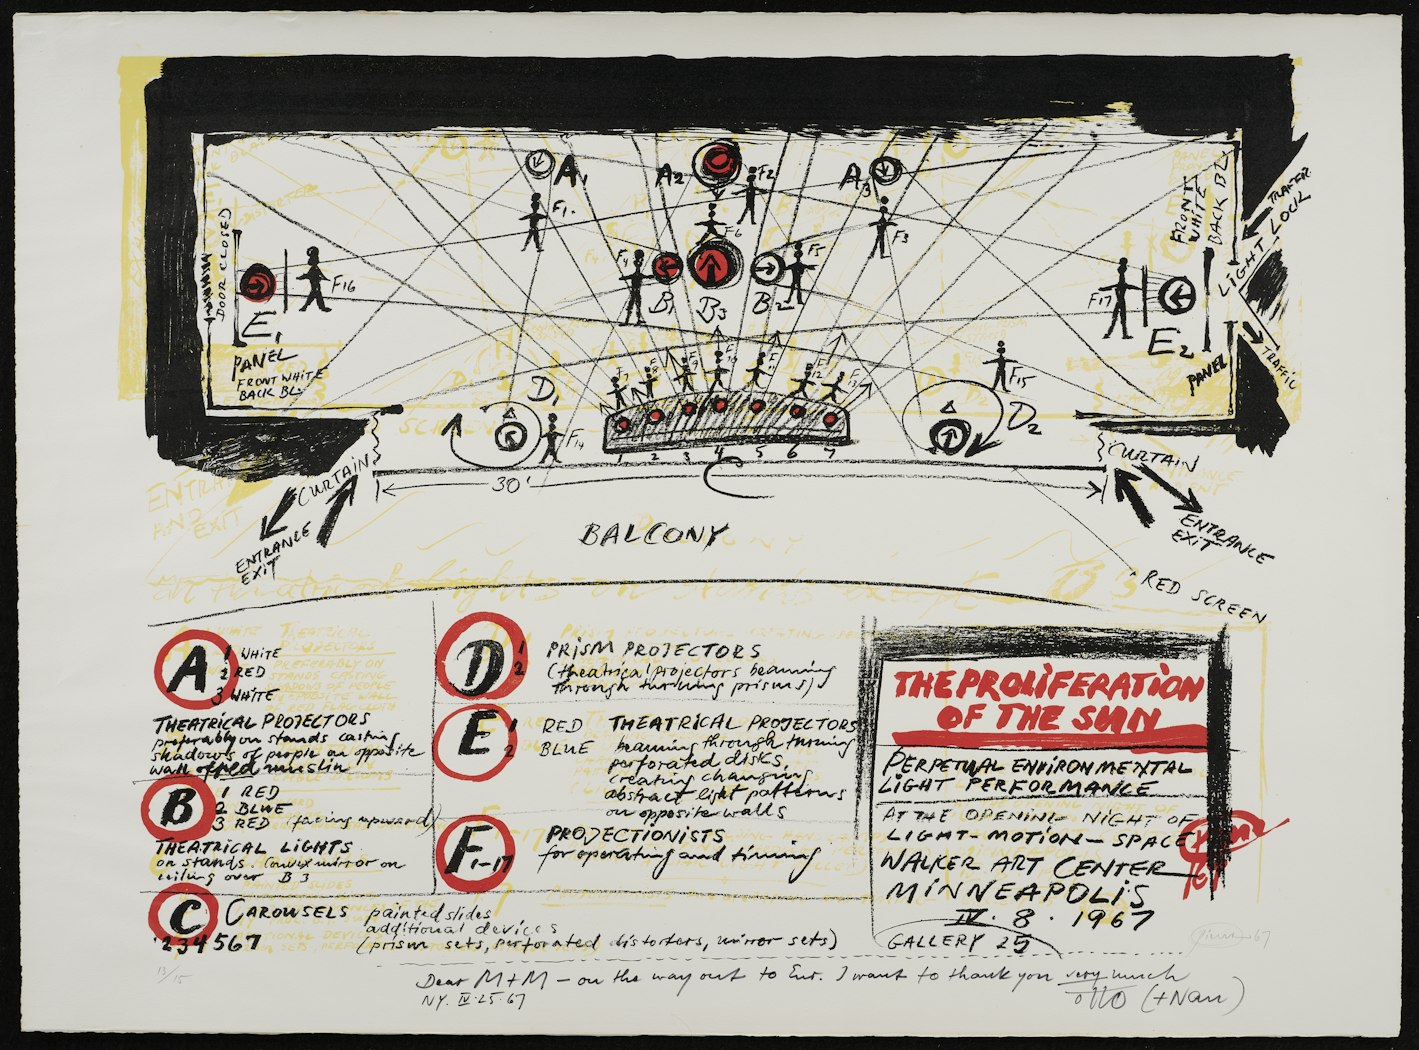 A1
A2
A3
F1
F2
F3
F4
F5
F6
B1
B3
B2
DOOR CLOSED
E1
F16
PANEL
FRONT WHITE
BACK BL
FRONT
WHITE
BACK BL
F17
E2
PANEL
TRAFFIC
LIGHT LOCK
TRAFFIC
D1
F14
F15
D2
1 2 3 4 5 6 7
C
CURTAIN
30'
CURTAIN
ENTRANCE
EXIT
BALCONY
ENTRANCE
EXIT
RED SCREEN
A 1 WHITE
2 RED
3 WHITE
THEATRICAL PROJECTORS
preferably on stands casting
shadows of people on opposite
wall of red muslin
B 1 RED
2 BLUE
3 RED (facing upward)
THEATRICAL LIGHTS
on stands. Convex mirror on
ceiling over B3
C CAROUSELS painted slides
1234567 additional devices
(prism sets, perforated distorters, mirror sets)
D 1 2 PRISM PROJECTORS
(theatrical projectors beaming
through turning prisms)
E 1 RED THEATRICAL PROJECTORS
2 BLUE beaming through turning
perforated disks,
creating changing
abstract light patterns
on opposite walls
F1-17 PROJECTIONISTS
for operating and timing
THE PROLIFERATION
OF THE SUN
PERPETUAL ENVIRONMENTAL
LIGHT PERFORMANCE
AT THE OPENING NIGHT OF
LIGHT-MOTION-SPACE
WALKER ART CENTER
MINNEAPOLIS
IV. 8. 1967
GALLERY 25
13/15
Dear M+M - on the way out to Eur. I want to thank you very much
NY. IV.25.67 otto (+Nan)